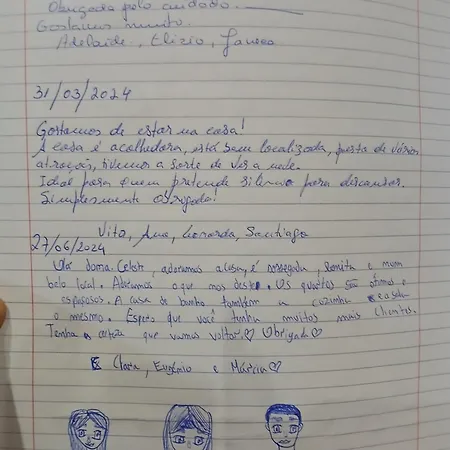 Obrigada pelo cuidado.
Gostamos muito.
Adelaide, Elizio,
31/03/2024
Gostamos de estar na casa!
A casa é acolhedora, está bem localizada, perto de várias
atraçoes, tivemos a sorte de ver a neve.
Ideal para quem pretende silêncio para discansar.
Simplesmente Obrigado!
Vito, Ana, Leonarda, Santiago
27/06/2024
Olá dona Celeste, adoramos a casa, é sossegada, bonita e num
belo local. Adoramos o que nos deste. Os quartos são ótimos e
espaçosos. A casa de banho também a cozinha e a sala
o mesmo. Espero que você tenha muitos mais clientes.
Tenha a certeza que vamos voltar♡ Obrigada♡
Clara, Eugénio e Márcia♡